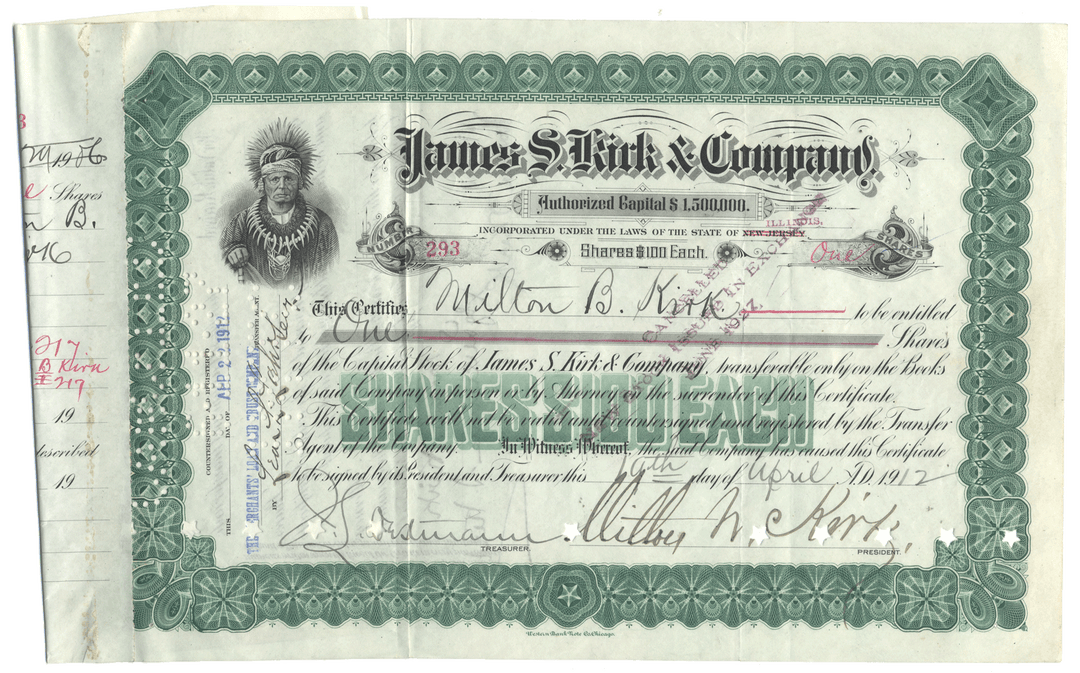 James S. Kirk & Company.
Authorized Capital $ 1,500,000.
ILLINOIS,
INCORPORATED UNDER THE LAWS OF THE STATE OF NEW JERSEY
NUMBER
293
Shares $100 Each.
One
SHARES
This Certifies Milton B. Kirk to be entitled
to One Shares
of the Capital Stock of James S. Kirk & Company, transferable only on the Books
of said Company in person or by Attorney on the surrender of this Certificate.
This Certificate will not be valid until countersigned and registered by the Transfer
Agent of the Company. In Witness Whereof, the said Company has caused this Certificate
to be signed by its President and Treasurer this 19th day of April A.D. 1912
TREASURER.
Milton W. Kirk,
PRESIDENT.
SHARES $100 EACH
CANCELLED
COUNTERSIGNED AND REGISTERED
THIS DAY OF
APR 22 1912
THE MERCHANTS' LOAN AND TRUST COMPANY
BY
TRANSFER AGENT.
1906
Shares
B.
217.
B Kirk
217
19
described
19
Western Bank Note Co. Chicago.